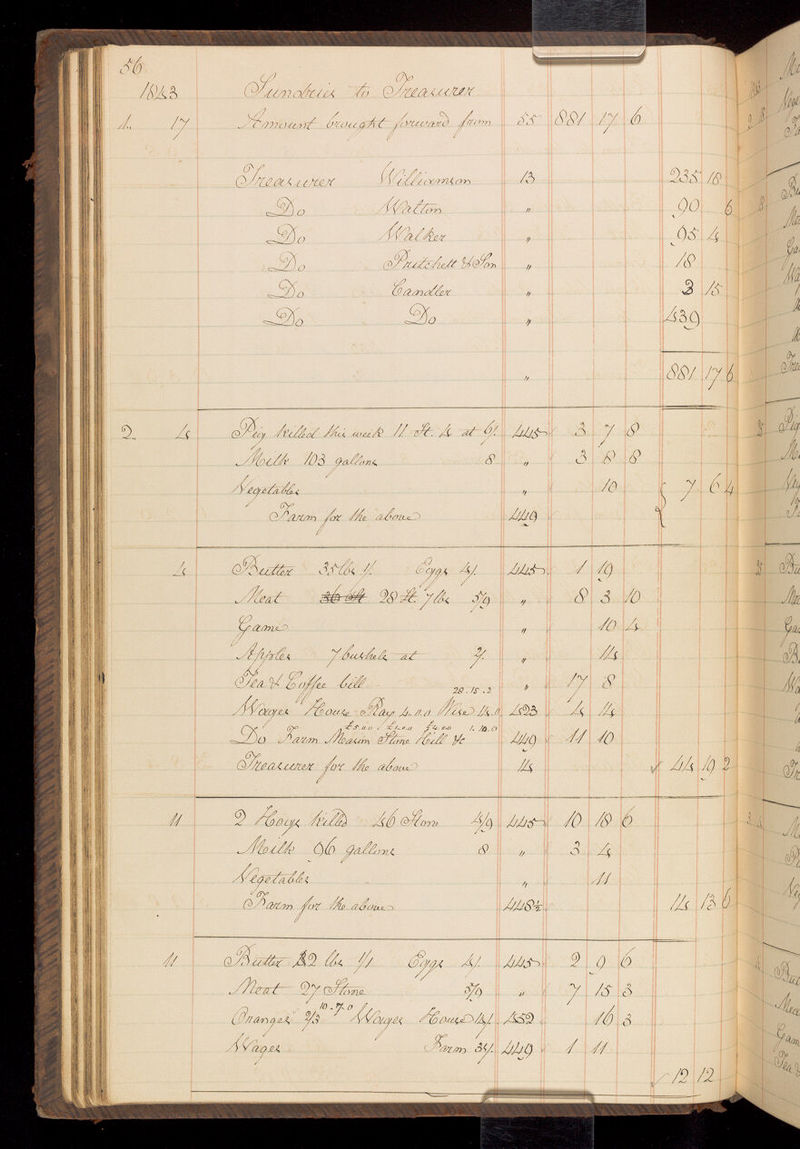 56
1843 Sundries to Treasurer
1. 17 Amount brought forward from 55 881 17 6
Treasurer Williamson 13 235 18
Do Walton " 90 6
Do Walker " 95 4
Do Pritchett & Son " 18
Do Candler " 3 15
Do Do " 439
" 881 17 6
2. 4 Pig killed this week 11 St. 4 at 6/. 445 3 7 8
Milk 103 gallons 8 " 3 8 8
Vegetables " 10 7 6 4
Farm for the above 449
4 Butter 35 lbs 1/. Eggs 4/. 445 1 19
Meat 28 St. 7 lbs 5/9 " 8 3 10
Game " 10 4
Apples 7 bushels at 2/. " 14
Tea & Coffee bill 28.15.2 " 17 8
Wages House Ray 4.0.0 Wise 14.0 4523 4 14
£5.0.0 £4.0.0 £4.0.0 1.10.0
Do Farm Mason Stone Hill &c 449 11 10
Treasurer for the above 14 44 19 2
11 2 Hogs killed 46 Stone 4/9 445 10 18 6
Milk 96 gallons 8 " 3 4
Vegetables " 11
Farm for the above 448½ 14 13 6
11 Butter 42 lbs 1/1 Eggs 4/. 445 2 9 6
Meat 27 Stone 5/9 " 7 15 3
10.7.0
Oranges 2/3 Wages House 14/. 452 16 3
Wages Farm 31/. 449 1 11
12 12